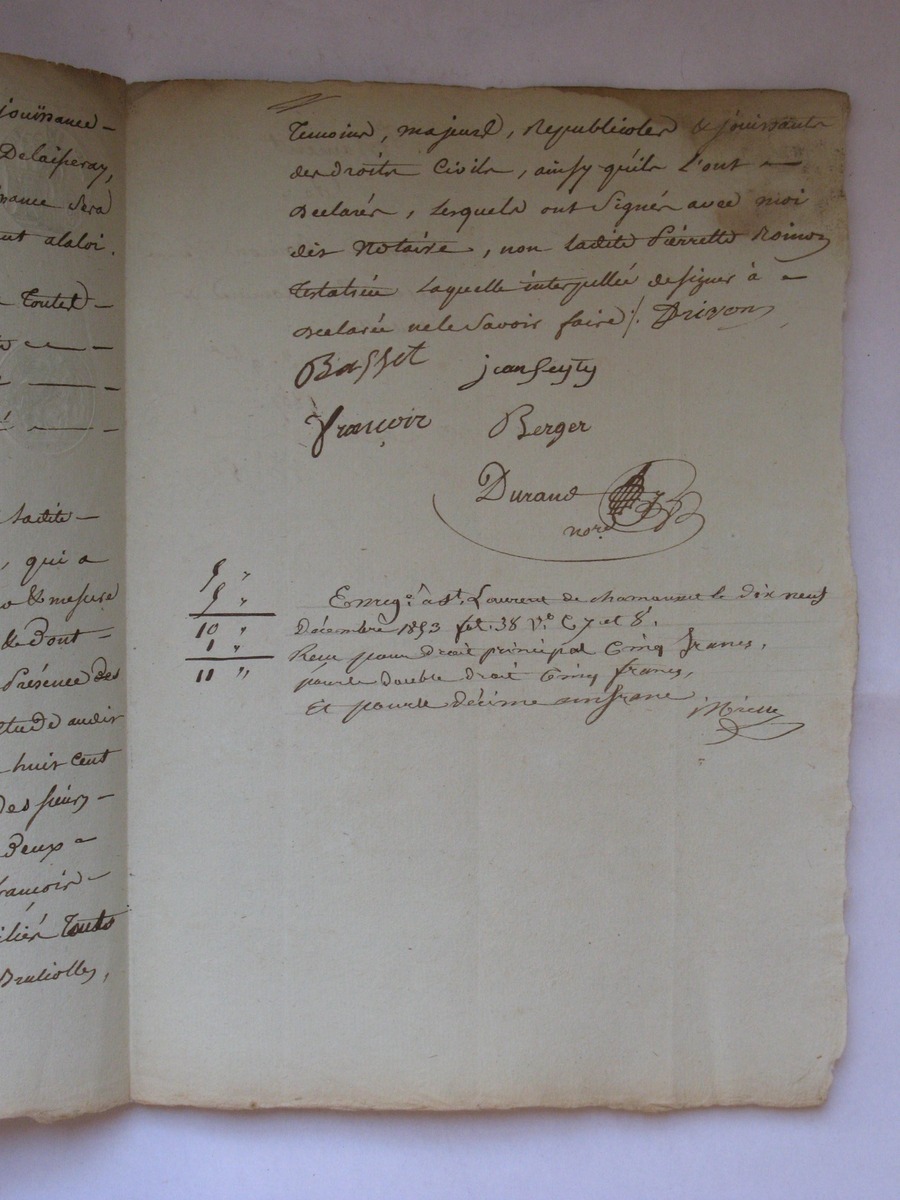 jouissance –
Delaisseray,
sera
ut alaloi.
– Toutes –
ladite –
, qui a
& mesure
& dont –
Présence des
étude audit
huit cent
des sieurs –
deux –
françois –
Touts
Brullioles,
Temoins, majeurs, Republicoles & jouissants
des droits Civils, ainsy quils l'ont –
declarés, Lesquels ont Signés avec moi
dit Notaire, non ladite Pierrette Roinon
Testatrice Laquelle interpellée de signer à –
declarée ne le Savoir faire /. Drivon
Basset jean Seyty
françois Berger
Durand
nore
5 "
5 "
10 "
1 "
11 "
Enregé à St. Laurent de chamousset le dix neuf
décembre 1813 fol. 38 Vo C. 7 et 8.
Reçu pour droit principal Cinq francs,
pour le double droit Cinq francs,
Et pour le décime un franc.